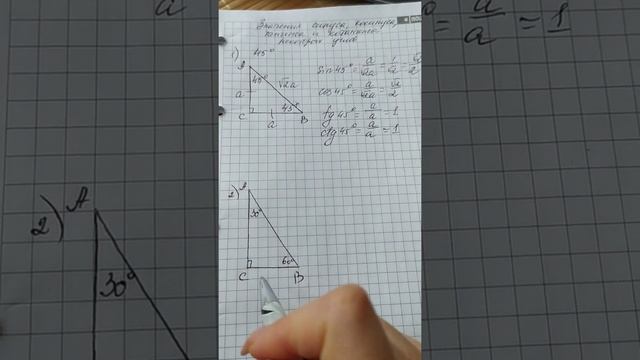 Значения синуса, косинуса,
тангенса и котангенса
некоторых углов
1) 45°
A
45°
a
√2a
45°
C
a
B
sin 45° = a/√2a = 1/√2 = √2
cos 45° = a/√2a = √2/2
tg 45° = a/a = 1
ctg 45° = a/a = 1
2) A
30°
60°
C
B
a
a/a = 1
2) A
30°